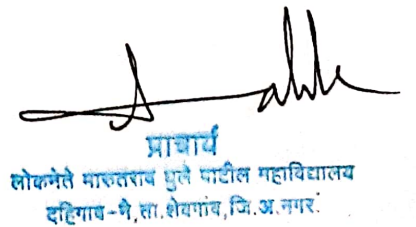 प्राचार्य
लोकनेते मारुतराव घुले पाटील महाविद्यालय
दहिगाव-ने, ता.शेवगांव, जि.अ.नगर.